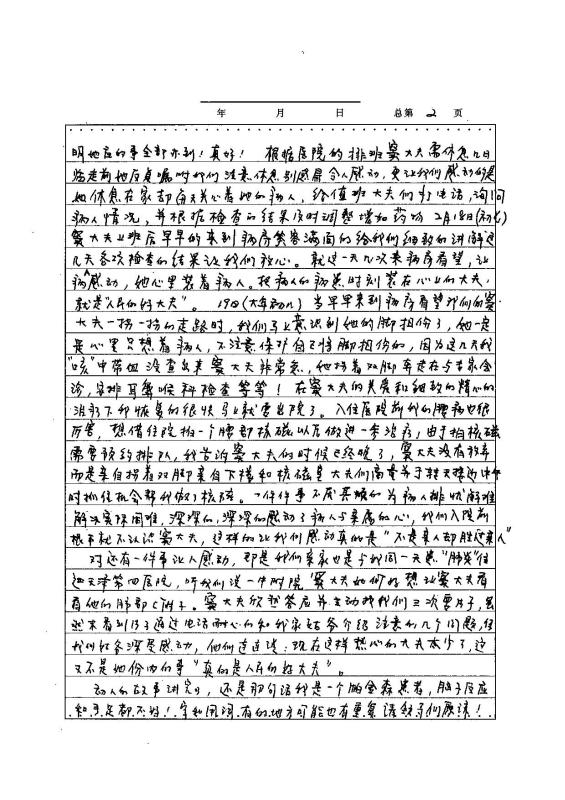 年 月 日 总第 2 页
明她应的事全部办到！真好！ 根据医院的排班窦大夫需休息几日
临走前她反复嘱咐我们注意休息别感冒令人感动，更让我们感动的是
她休息在家却每天关心着她的病人，给值班大夫们打电话，询问
病人情况，并根据检查的结果及时调整增加药物 2月18日(初七)
窦大夫上班后早早的来到病房笑容满面的给我们细致的讲解这
几天各次检查的结果让我们放心。就这一天几次来病房看望，让
病人感动，她心里装着病人。把病人的病患时刻装在心上的大夫，
就是“人民的好大夫”。 19日(大年初八) 当早早来到病房看望我们的窦
大夫一拐一拐的走路时，我们马上意识到她的脚扭伤了，她一定
是心里只想着病人，不注意保护自己将脚扭伤的，因为这几天我
“咳”中带血没查出来窦大夫非常急，她拐着双脚奔走在与专家会
诊，安排耳鼻喉科检查等等！在窦大夫的关爱和细致的精心的
治疗下我恢复的很快马上就要出院了。入住医院前我的腰病也很
厉害，想借住院拍一个腰部核磁以后做进一步治疗；由于拍核磁
需要预约排队，我告诉窦大夫的时候已经晚了，窦大夫没有放弃
而是亲自拐着双脚亲自下楼和核磁室大夫们商量并于转天接近中午
时抓住机会帮我做了核磁。一件件事不厌其烦的为病人排忧解难
解决实际困难，深深的，深深的感动了病人与亲属的心，我们入院前
根本就不认识窦大夫，这样的让我们感动真的是“不是亲人却胜过亲人”
对还有一件事让人感动，那是我们亲家也是与我同一天患“肺炎”住
进天津第四医院，听我们说一中附院窦大夫如何好想让窦大夫看
看他们的肺部C附片。窦大夫欣然答应并主动找我们三次要片子，虽
然未看到片子通过电话耐心的和我家姑爷介绍注意的几个问题，使
我的姑爷深受感动，他们连连说：现在这样热心的大夫太少了，这
又不是她份内的事“真的是人民的好大夫”。
动人的故事讲完了，还是那句话我是一个脑金森患者，脑子反应
和手足都不好！字和用词有的地方可能也有重复请领导们原谅！